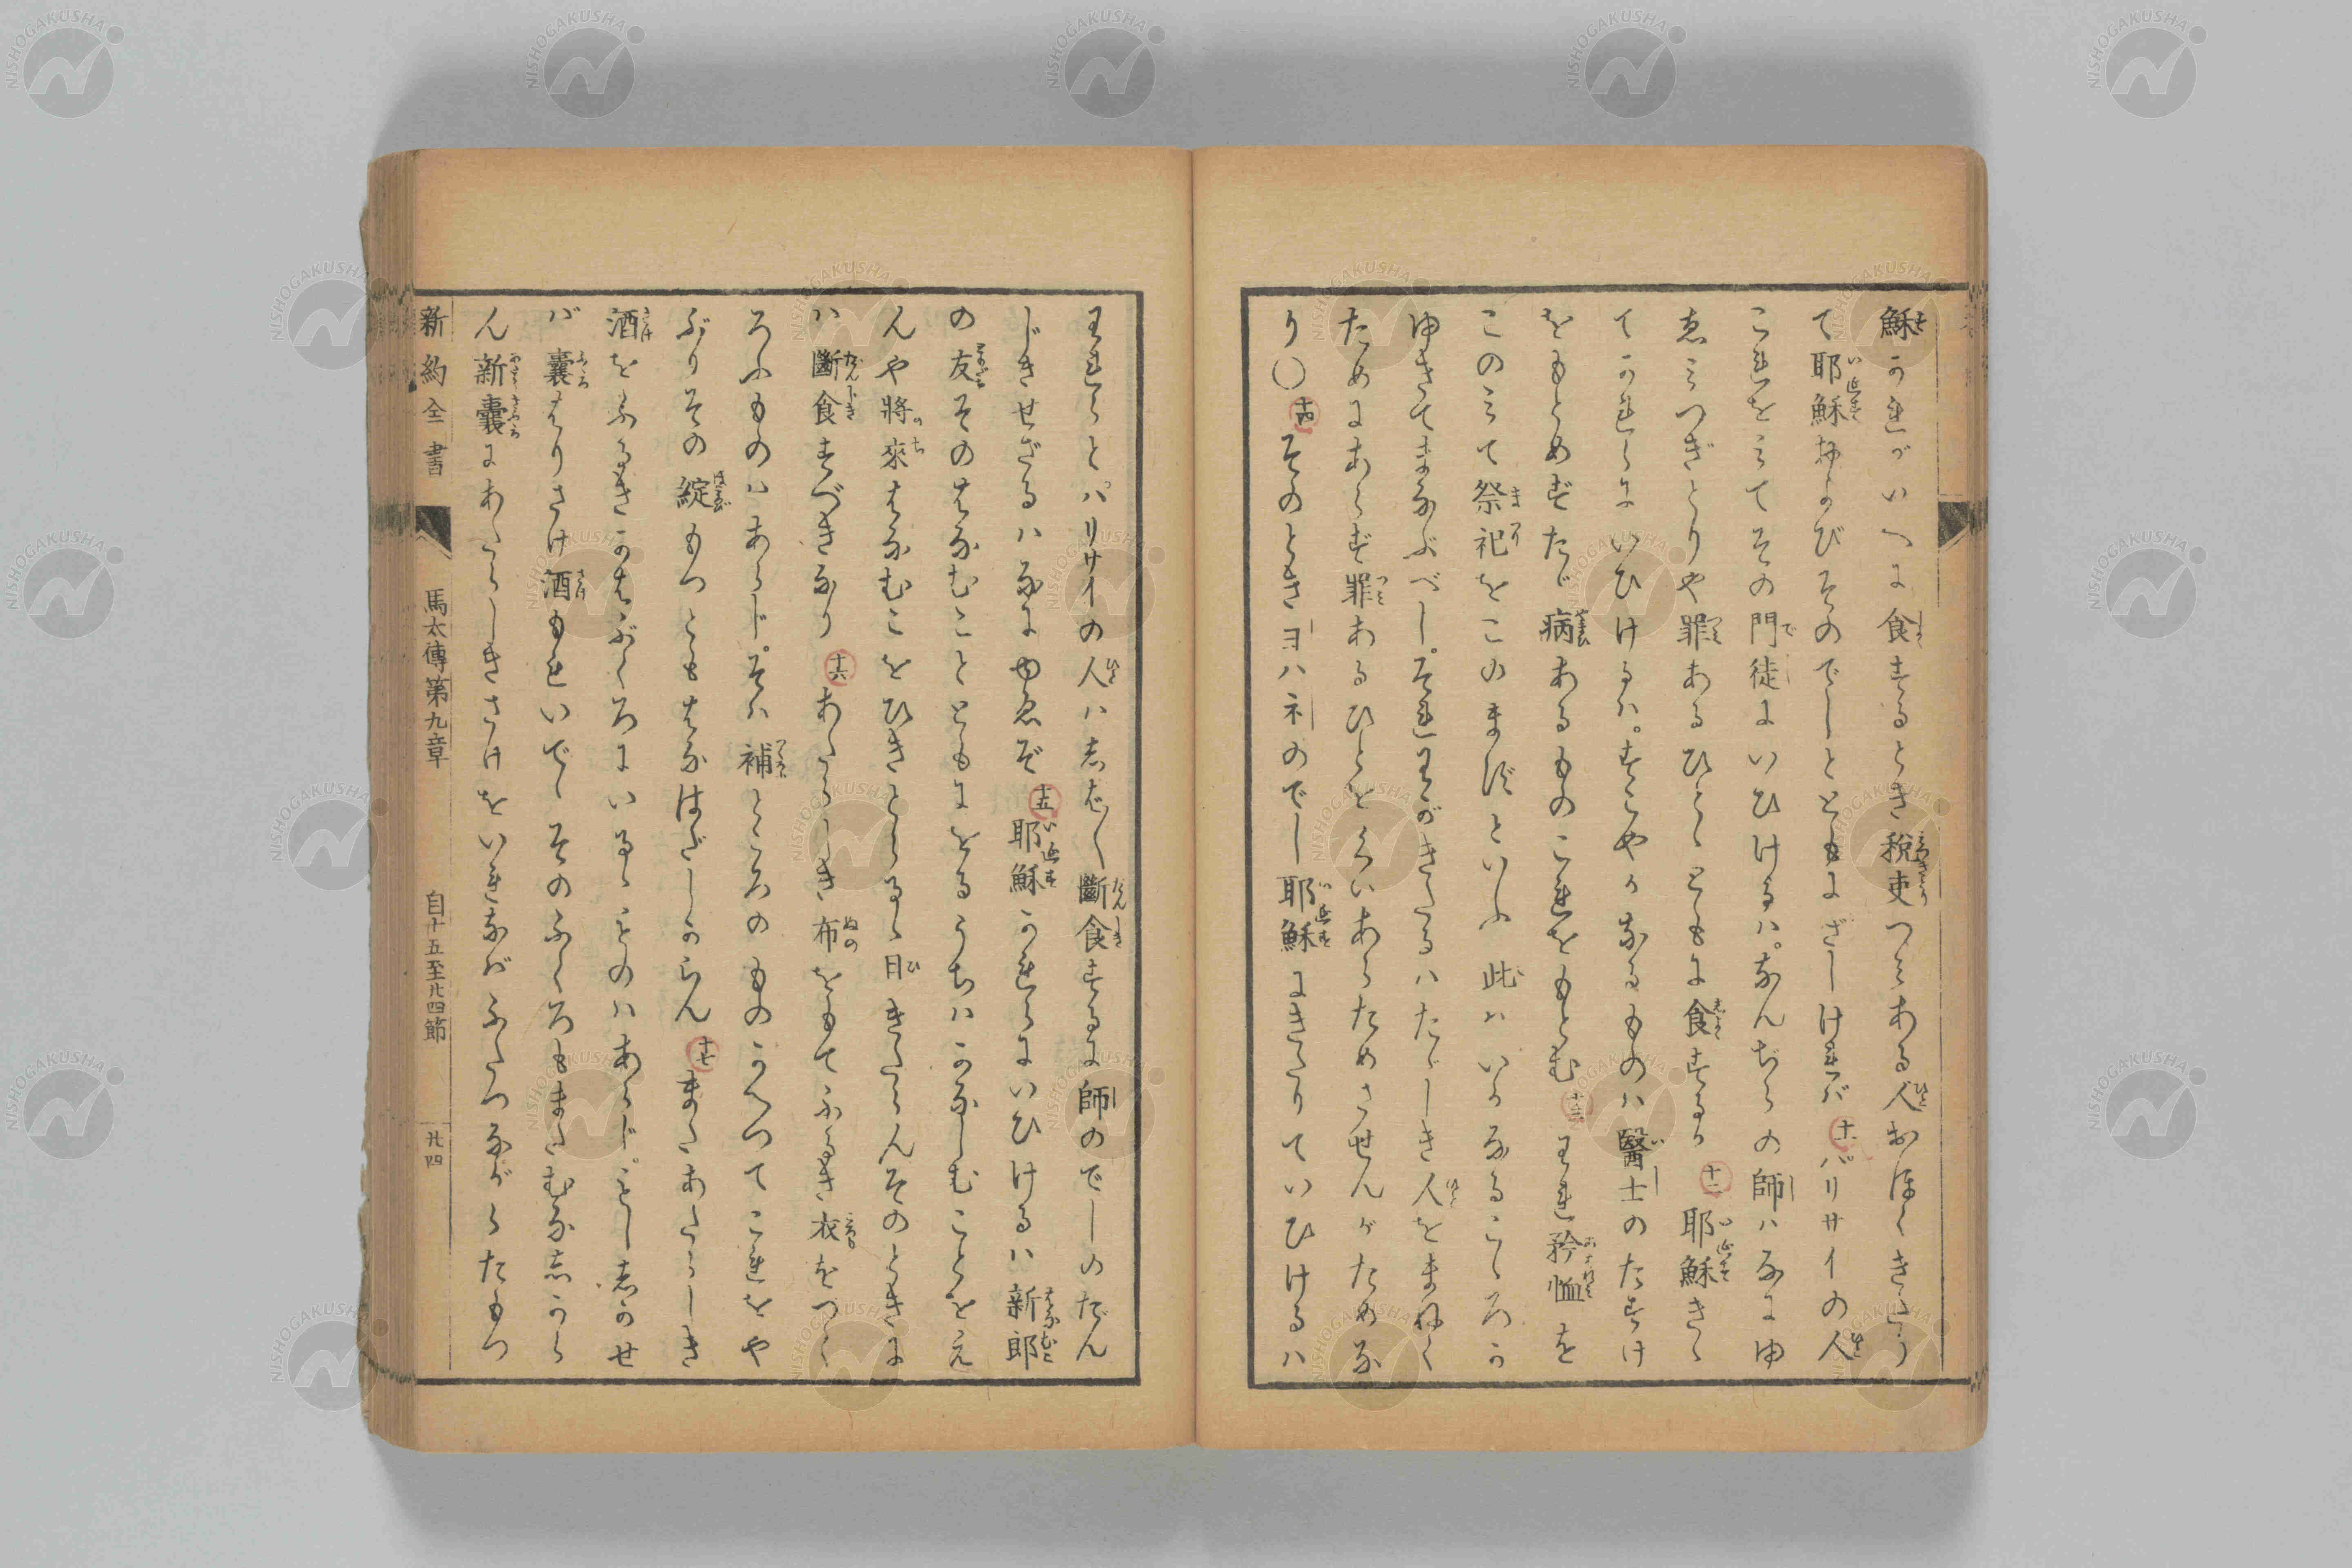 穌かれがいへに食するとき税吏つみある人おほくきたり
て耶穌およびそのでしとともにざしければ十一パリサイの人
これをみてその門徒にいひけるハ。なんぢらの師ハなにゆ
ゑみつぎとりや罪あるひとゝともに食するか十二耶穌きゝ
てかれらにいひけるハ。すこやかなるものハ醫士のたすけ
をもとめずたゞ病あるものこれをもとむ十三われ矜恤を
このみて祭祀をこのまずといふ此ハいかなるこゝろか
ゆきてまなぶべし。それわがきたるハたゞしき人をまねく
ためにあらず罪あるひとをくいあらためさせんがためな
り〇十四そのときヨハネのでし耶穌にきたりていひけるハ
われらとパリサイの人ハしば〱斷食するに師のでしのだん
じきせざるハなにゆゑぞ十五耶穌かれらにいひけるハ新郎
の友そのはなむこともにをるうちハかなしむことをえ
んや將來はなむこをひきとらるゝ日きたらんそのときに
ハ斷食すべきなり十六あたらしき布をもてふるき衣をつく
ろふものハあらじ。そハ補ところのものかへつてこれをや
ぶりその綻もつともはなはだしからん十七またあたらしき
酒をふるきかはぶくろにいるゝものハあらじ。もししかせ
バ嚢はりさけ酒もれいでゝそのふくろもまたむなしから
ん新嚢にあたらしきさけをいれなバふたつながらたもつ
新約全書
馬太傳第九章
自十五至廿四節
廿四
NISHOGAKUSHA